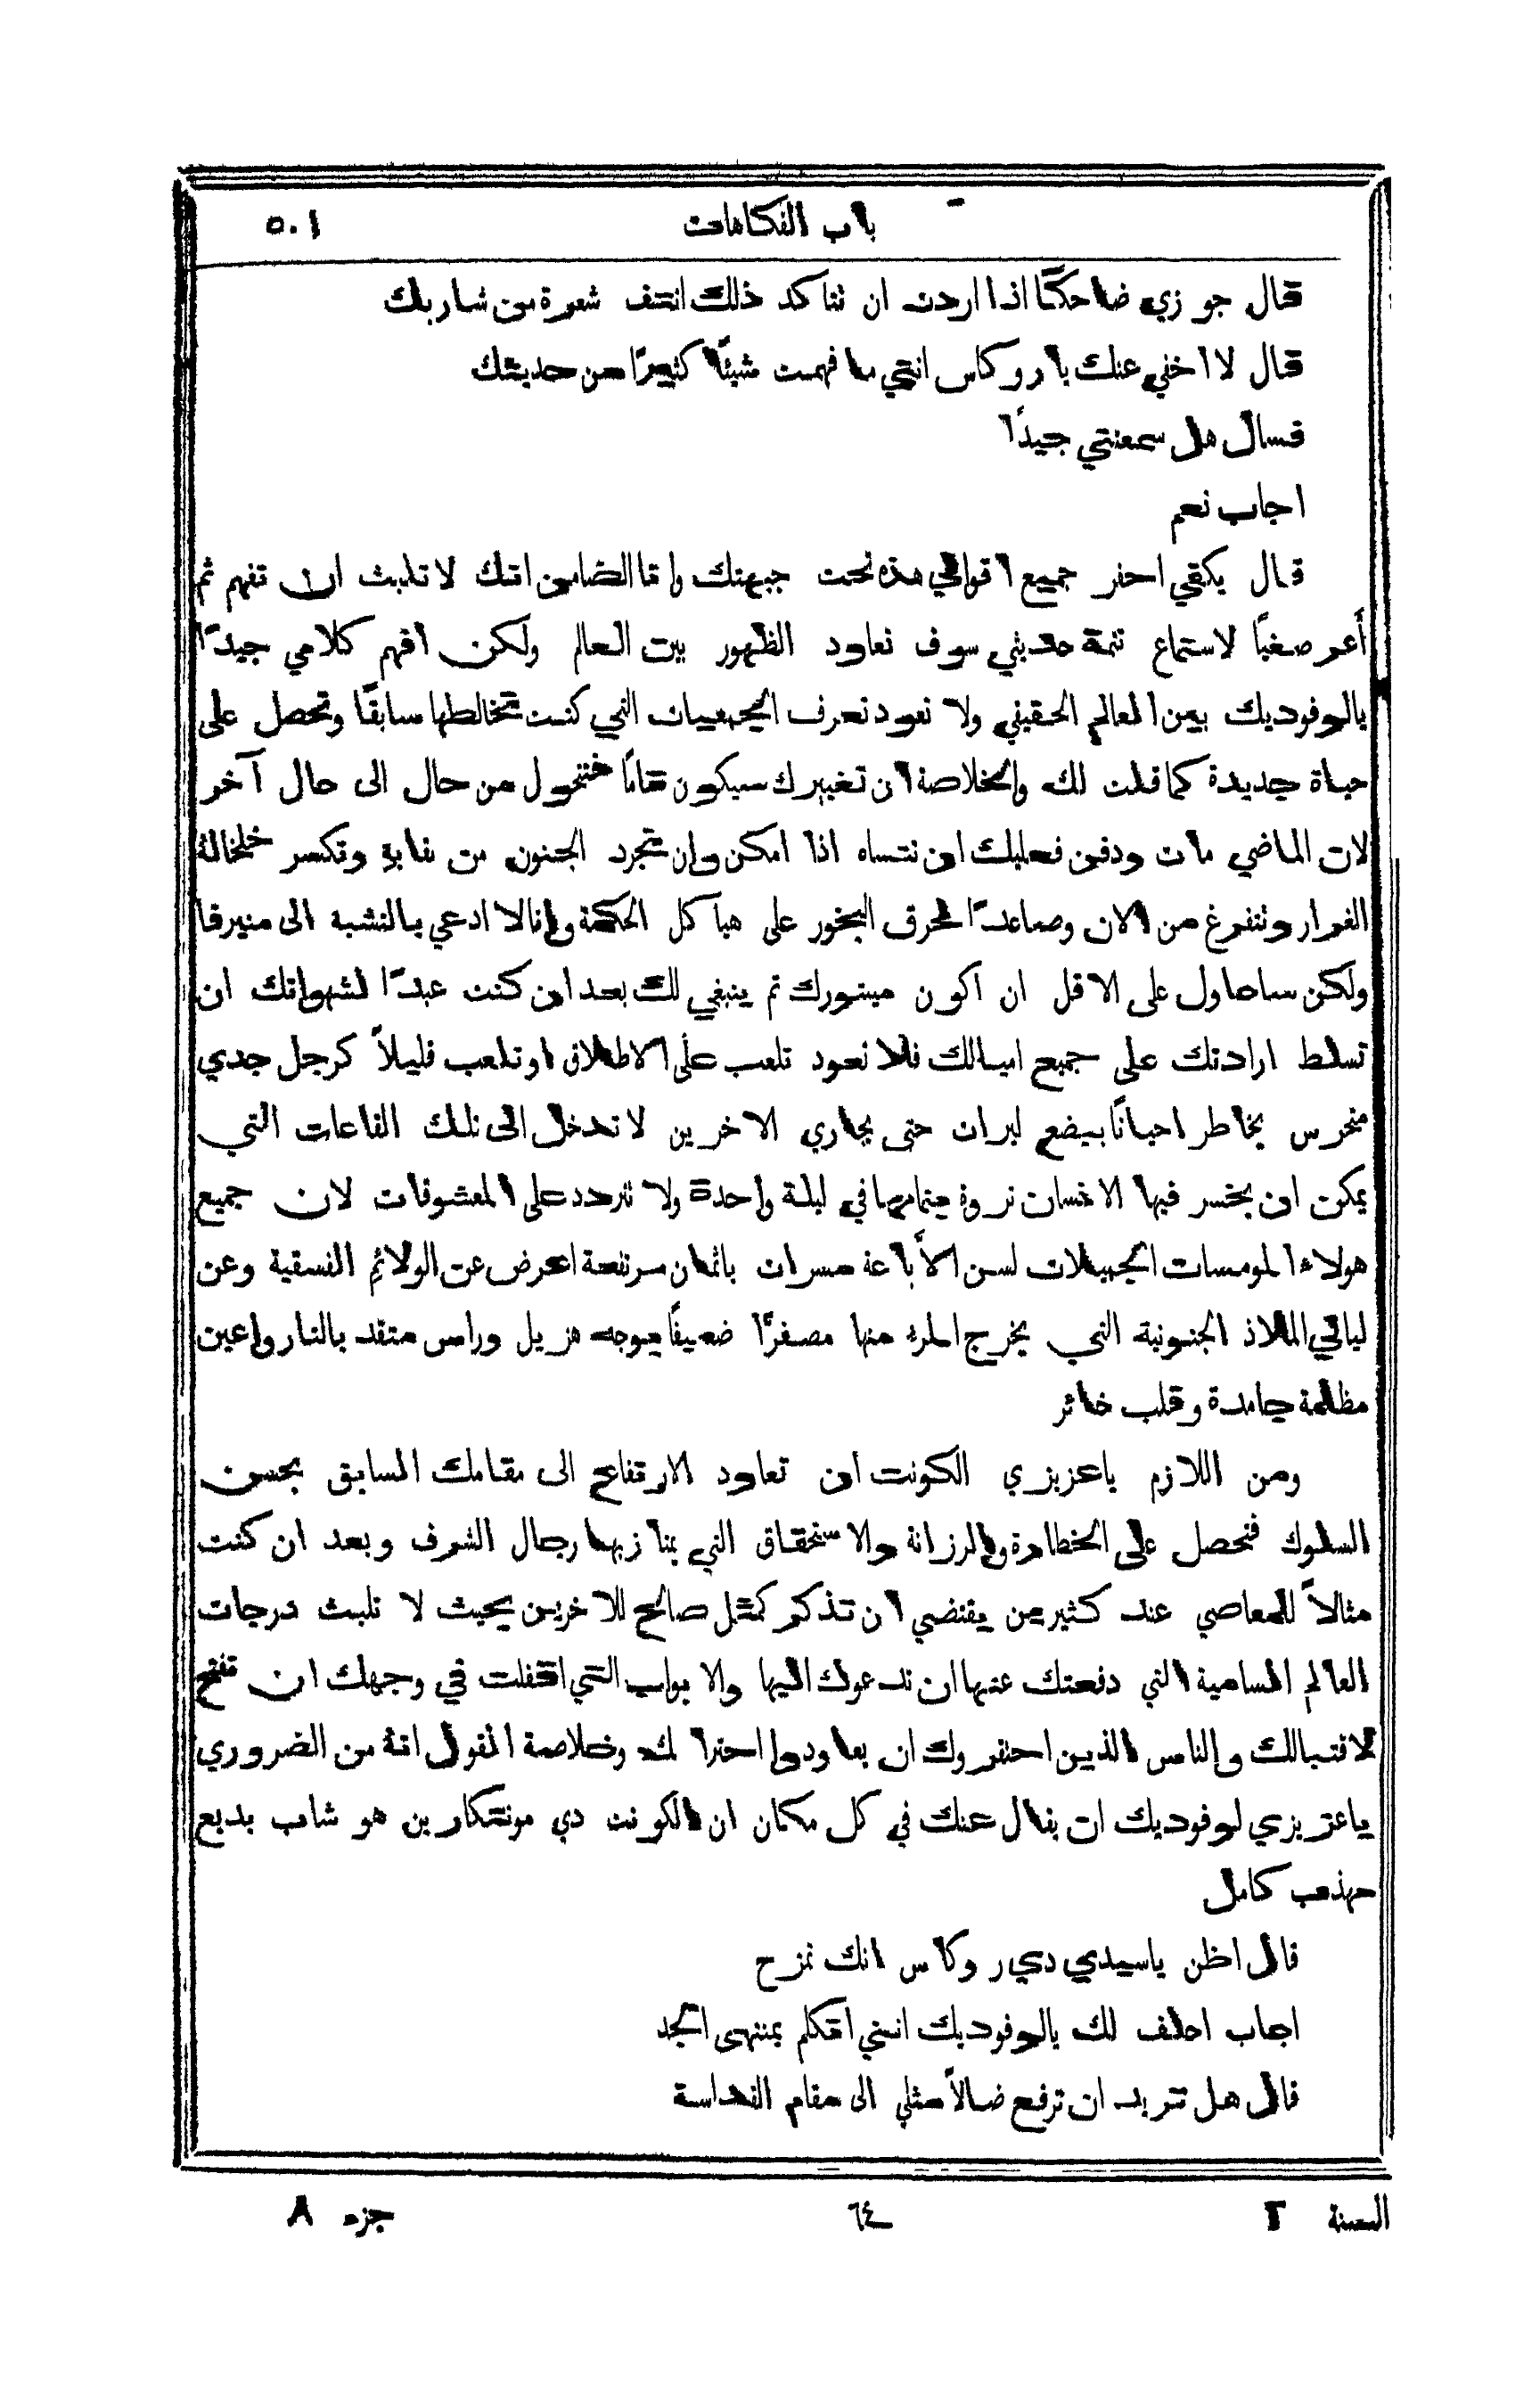 باب الفكاهات ٥٠١
قال جوزي ضاحكًا اذا اردت ان تتاكد ذلك انتف شعرة من شاربك
قال لا اخفي عنك يا روكاس انني ما فهمت شيئًا كثيرًا من حديثك
قال هل سمعتني جيدًا
اجاب نعم
قال يكفي احفر جميع اقوالي هذه تحت جبهتك وانا الضامن انك لا تلبث ان تفهم ثم
أعر صغيًا لاستماع تتمة حديثي سوف تعاود الظهور بين العالم ولكن افهم كلامي جيدًا
يالوفوديك بين العالم الحقيقي ولا تعود تعرف الجمعيات التي كنت تخالطها سابقًا وتحصل على
حياة جديدة كما قلت لك والخلاصة ان تغييرك سيكون تمامًا فتتحول من حال الى حال آخر
لان الماضي مات ودفن فعليك ان تنساه اذا امكن وان تجرد الجنون من نابه وتكسر خلخاله
الفرار وتتفرغ من الان وصاعدًا لحرق البخور على هياكل الحكمة وانا لا ادعي بالنسبة الى منيرفا
ولكن ساحاول على الاقل ان اكون ميتورك ثم ينبغي لك بعد ان كنت عبدًا لشهواتك ان
تسلط ارادتك على جميع اميالك فلا تعود تلعب على الاطلاق او تلعب قليلاً كرجل جدي
متحرس يخاطر احيانًا ببضع ليرات حتى يجاري الاخرين لا تدخل الى تلك القاعات التي
يمكن ان يخسر فيها الانسان ثروة بتمامها في ليلة واحدة ولا تتردد على المعشوقات لان جميع
هولاء المومسات الجميلات لسن الاَّ باعة مسرات باثمان مرتفعة اعرض عن الولائم الفسقية وعن
ليالي الملاذ الجنونية التي يخرج المرء منها مصفرًا ضعيفًا بوجه هزيل وراس متقد بالنار واعين
مظلمة جامدة وقلب خائر
ومن اللازم ياعزيزي الكونت ان تعاود الارتفاع الى مقامك السابق بحسن
السلوك فتحصل على الخطارة والرزانة والاستحقاق التي يمتاز بها رجال الشرف وبعد ان كنت
مثالاً للمعاصي عند كثيرين يقتضي ان تذكر كمثل صالح للاخرين بحيث لا تلبث درجات
العالم السامية التي دفعتك عنها ان تدعوك اليها والابواب التي اقفلت في وجهك ان تفتح
لاقتبالك والناس الذين احتقروك ان يعاودوا احترامك وخلاصة القول انهُ من الضروري
ياعزيزي لوفوديك ان يقال عنك في كل مكان ان الكونت دي مونتكارين هو شاب بديع
مهذب كامل
قال اظن ياسيدي دي روكاس انك تمزح
اجاب احلف لك يالوفوديك انني اتكلم بمنتهى الجد
قال هل تريد ان ترفع ضالاً مثلي الى مقام القداسة
السنة ٢ ٦٤ جزء ٨